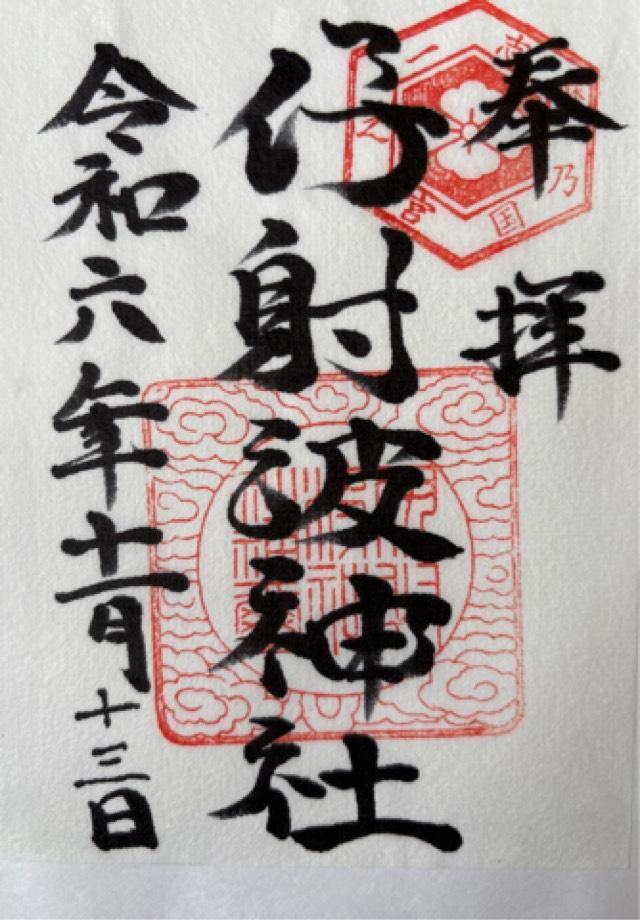 奉拝
伊射波神社
令和六年十一月十三日
志摩乃国一之宮